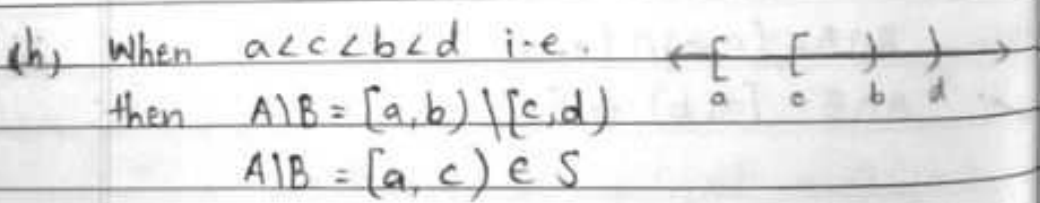 (h) When a<c<b<d i.e.
a c b d
then A\B = [a,b)\[c,d)
A\B = [a, c) ∈ S